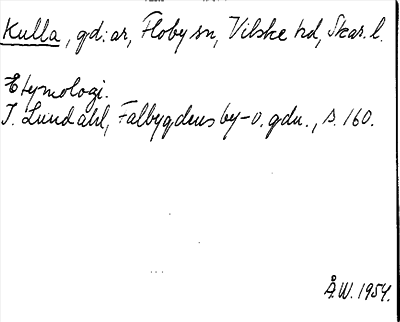 Kulla, gd:ar, Floby sn, Vilske hd, Skar. l.
Etymologi.
I. Lundahl, Falbygdens by- o. gdn., s. 160.
Å.W. 1954.